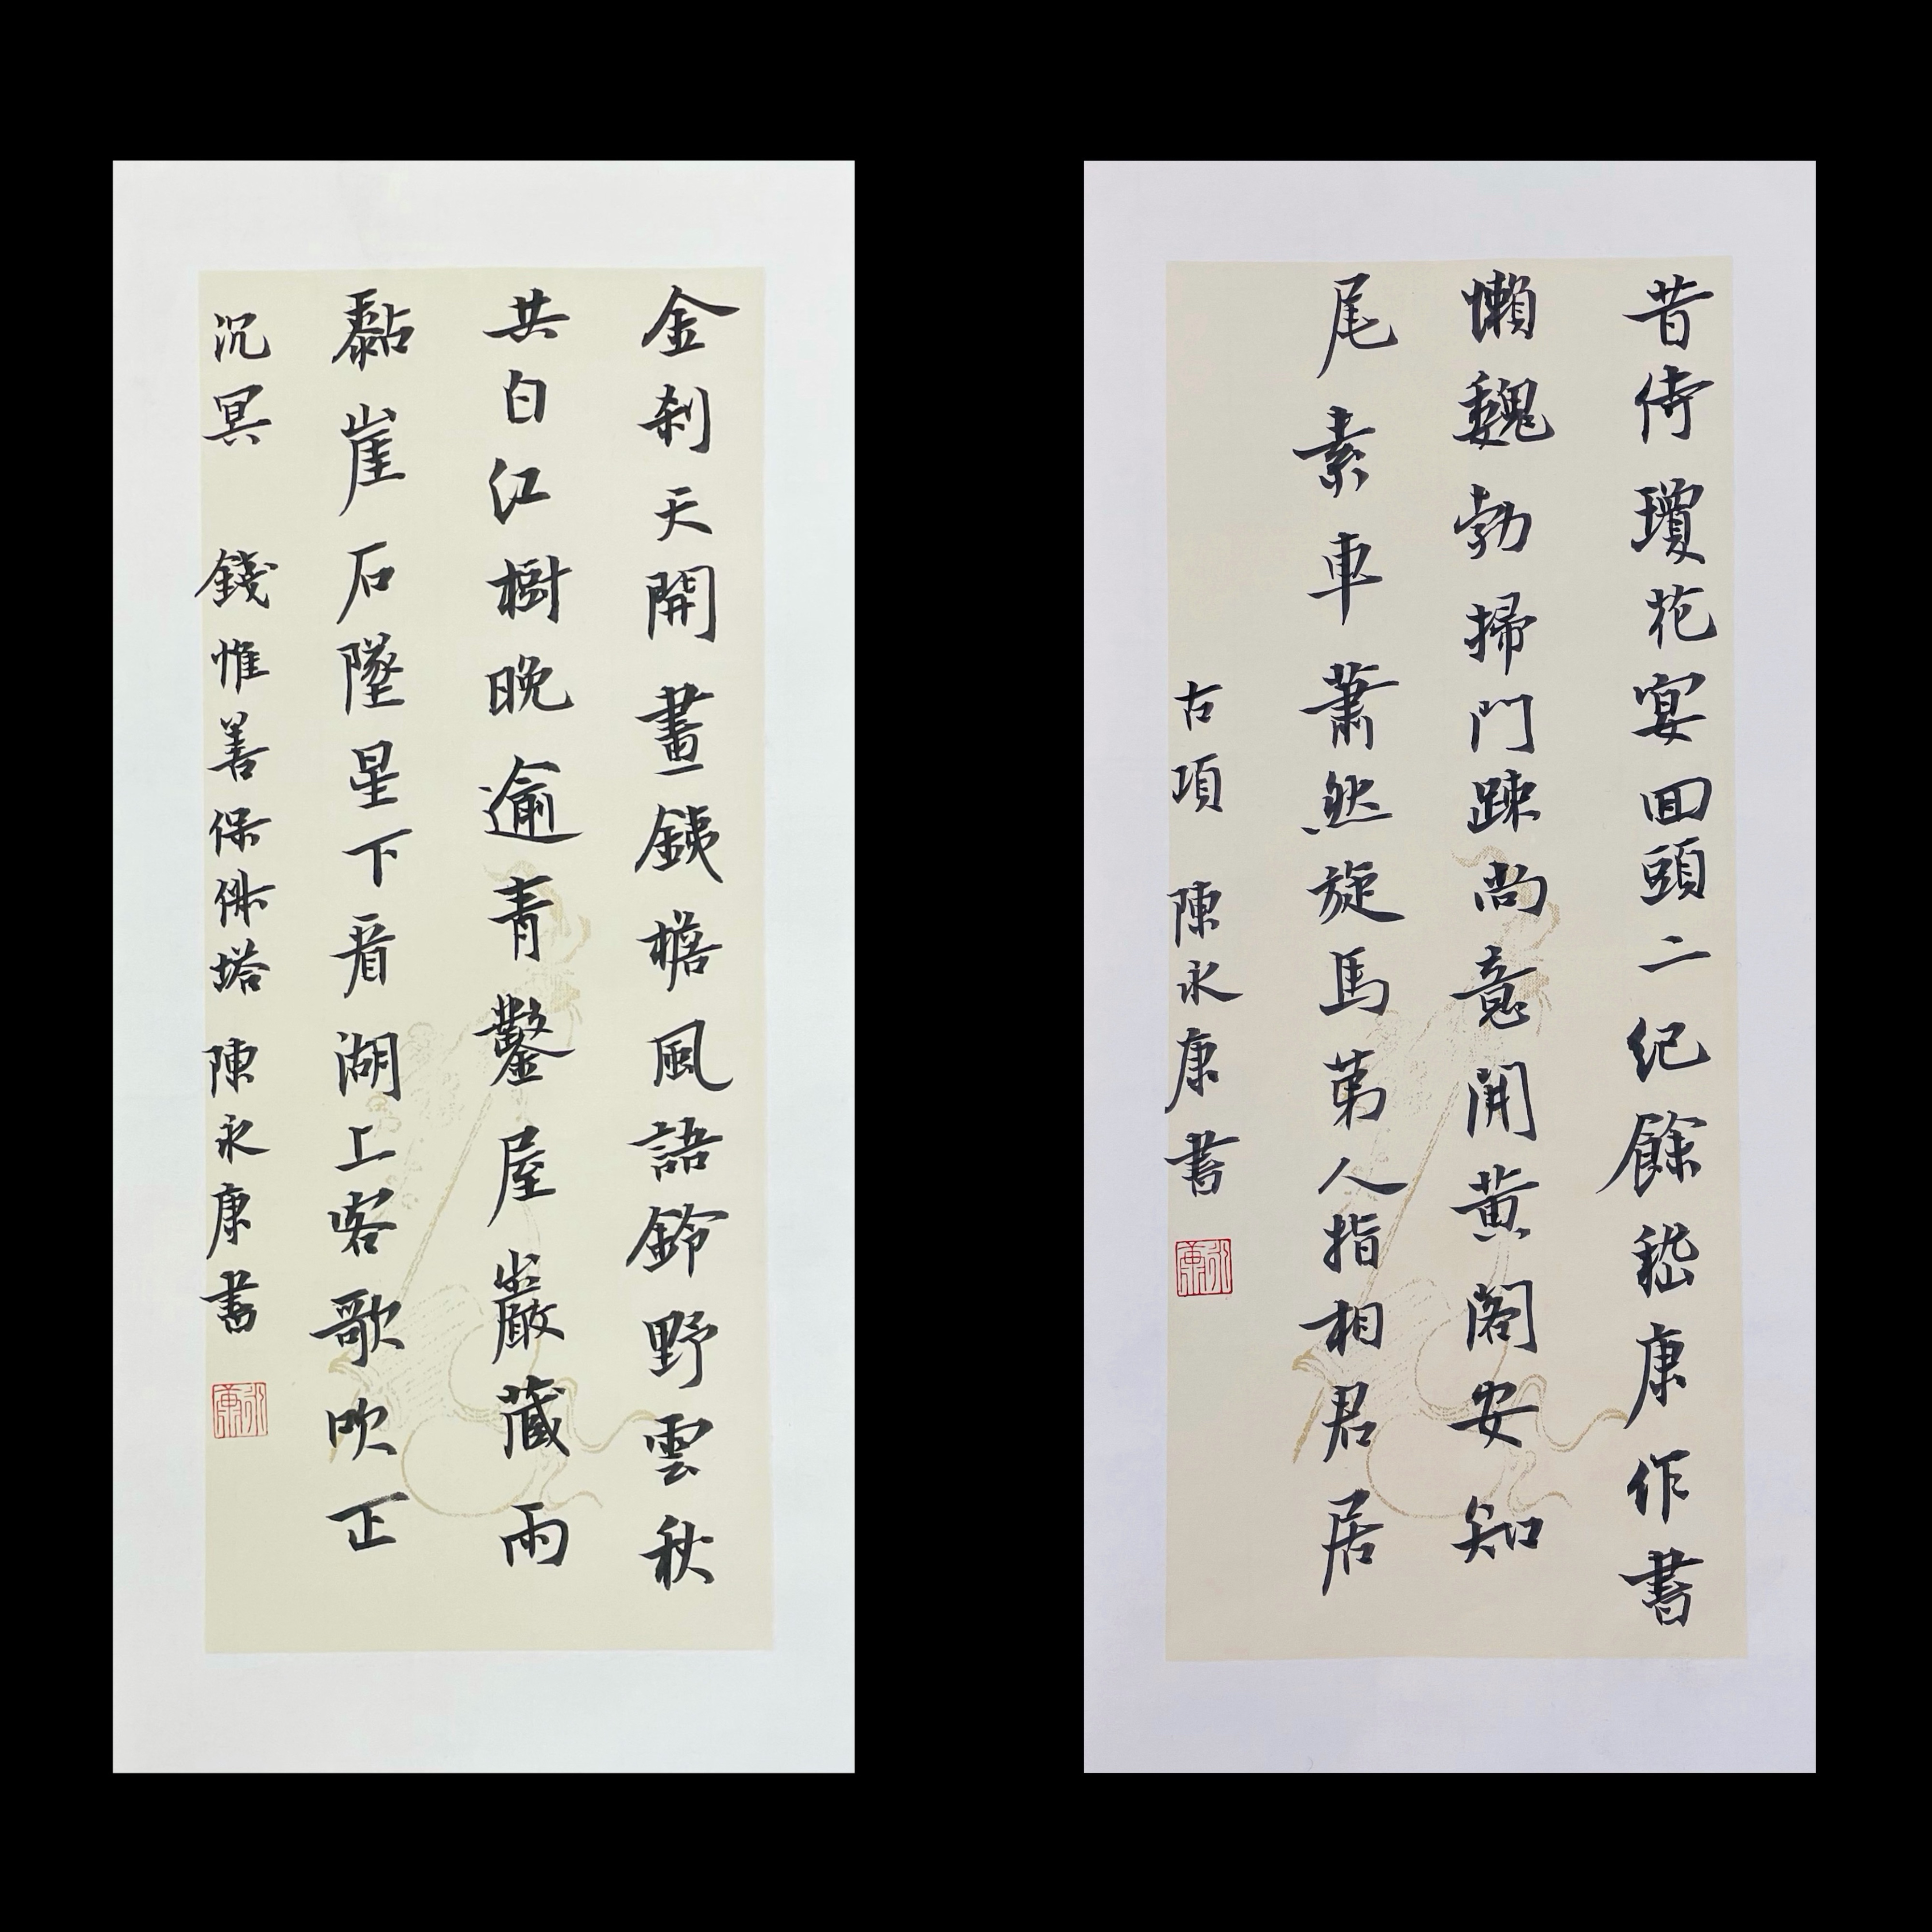 昔侍瓊花宴回頭二紀餘嵇康作書
懶魏勃掃門踈尚意開黃閣安知
尾素車蕭然旋馬第人指相君居
古項 陳永康書
永康
金刹天開畫銕檐風語鈴野雲秋
共白江樹晚逾青鑿屋巖藏雨
黏崖石墜星下看湖上客歌吹正
沉冥 錢惟善保俶塔 陳永康書
永康